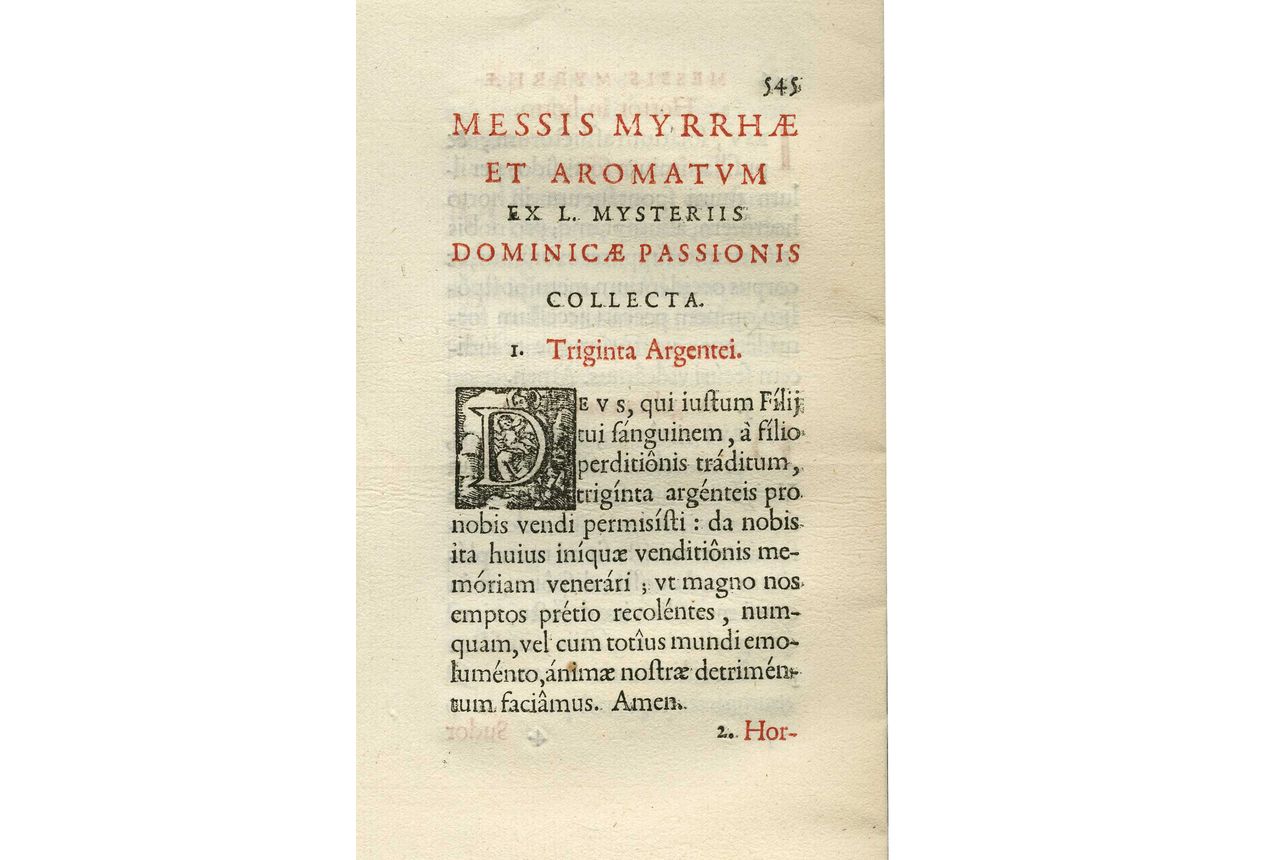 545
MESSIS MYRRHÆ
ET AROMATVM
EX L. MYSTERIIS
DOMINICÆ PASSIONIS
COLLECTA.
1. Triginta Argentei.
DEVS, qui iuſtum Fílij
tui ſánguinem, à fílio
perditiônis tráditum,
trigínta argénteis pro
nobis vendi permisíſti : da nobis
ita huius iníquæ venditiônis me-
móriam venerári ; vt magno nos
emptos prétio recoléntes, num-
quam, vel cum totîus mundi emo-
luménto, ánimæ noſtræ detrimén-
tum faciâmus. Amen.
2. Hor-